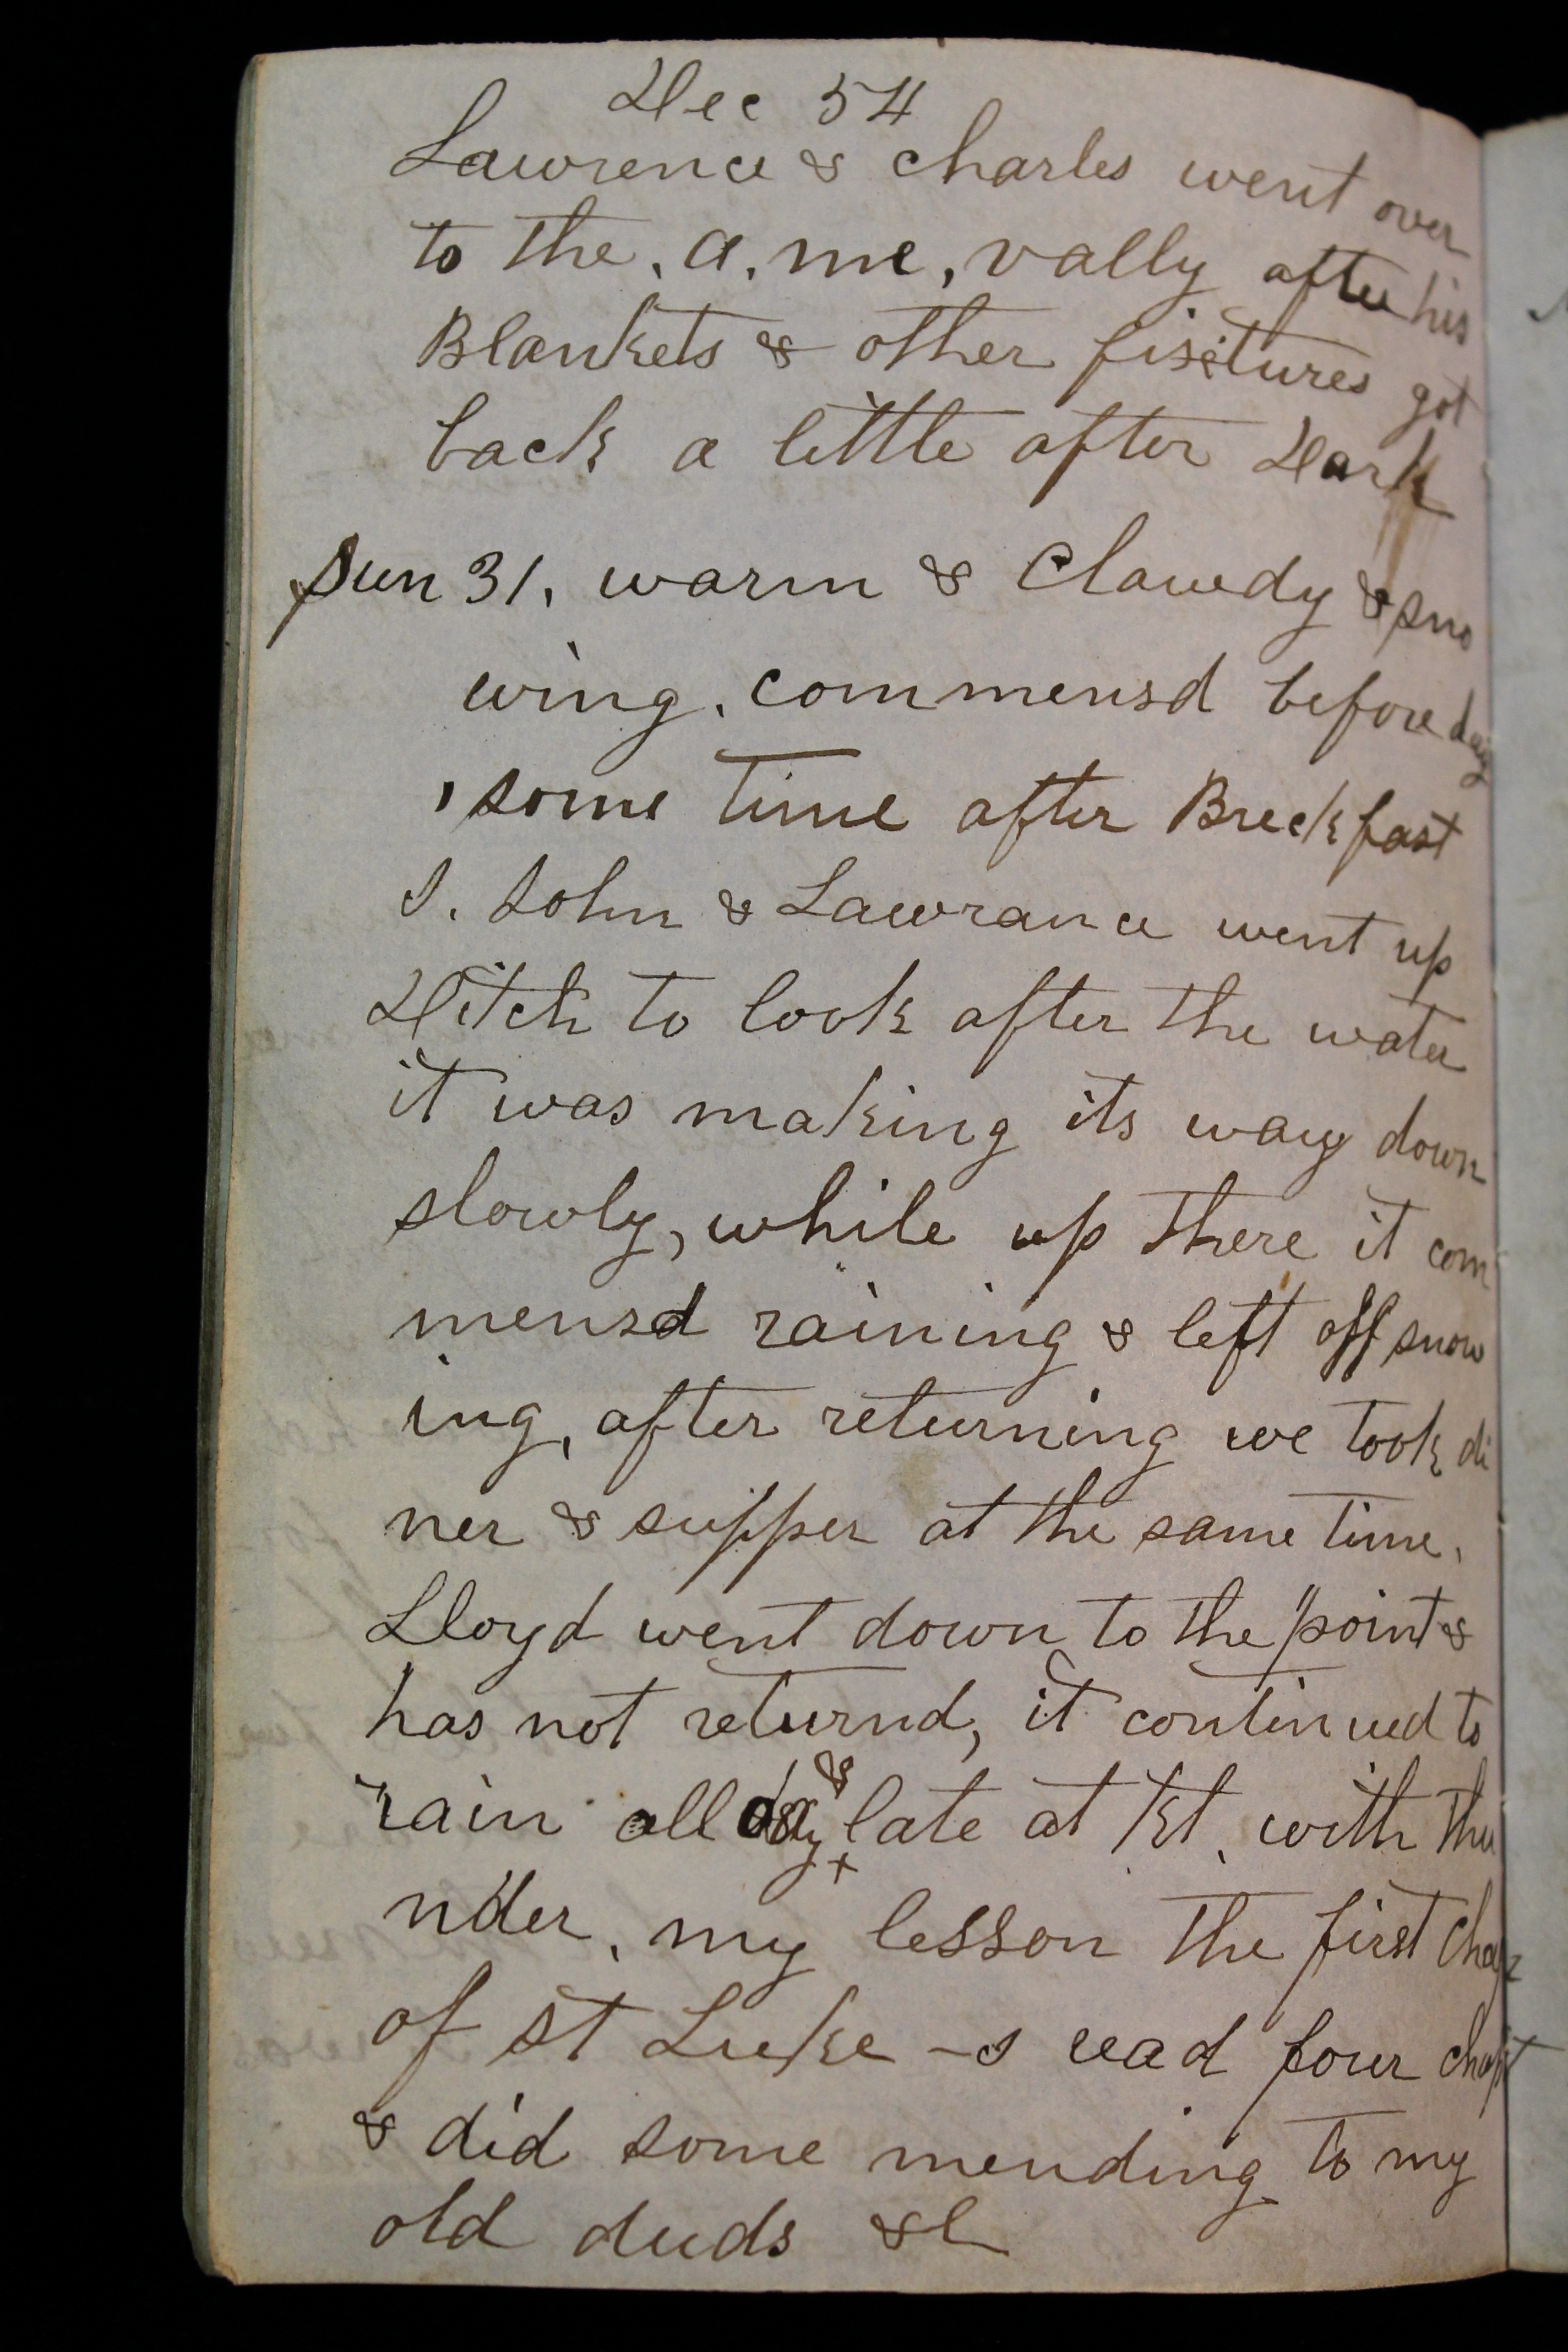 Dec 54
Lawrence & Charles went over
to the, A, me, vally after his
Blankets & other fixtures got
back a little after Dark
Sun 31, warm & Clowdy & sno
wing, commensd before day
, some time after Breckfast
I. John & Lawrance went up
Ditch to look after the water
it was making its way down
slowly, while up there it com
mensd raining & left off snow
ing, after returning we took di
ner & supper at the same time,
Lloyd went down to the point &
has not returnd, it continued to
rain all day & late at kt, with thu
nder, my lesson the first Chap
of St Luke - I read four chapt
& did some mending to my
old duds &c